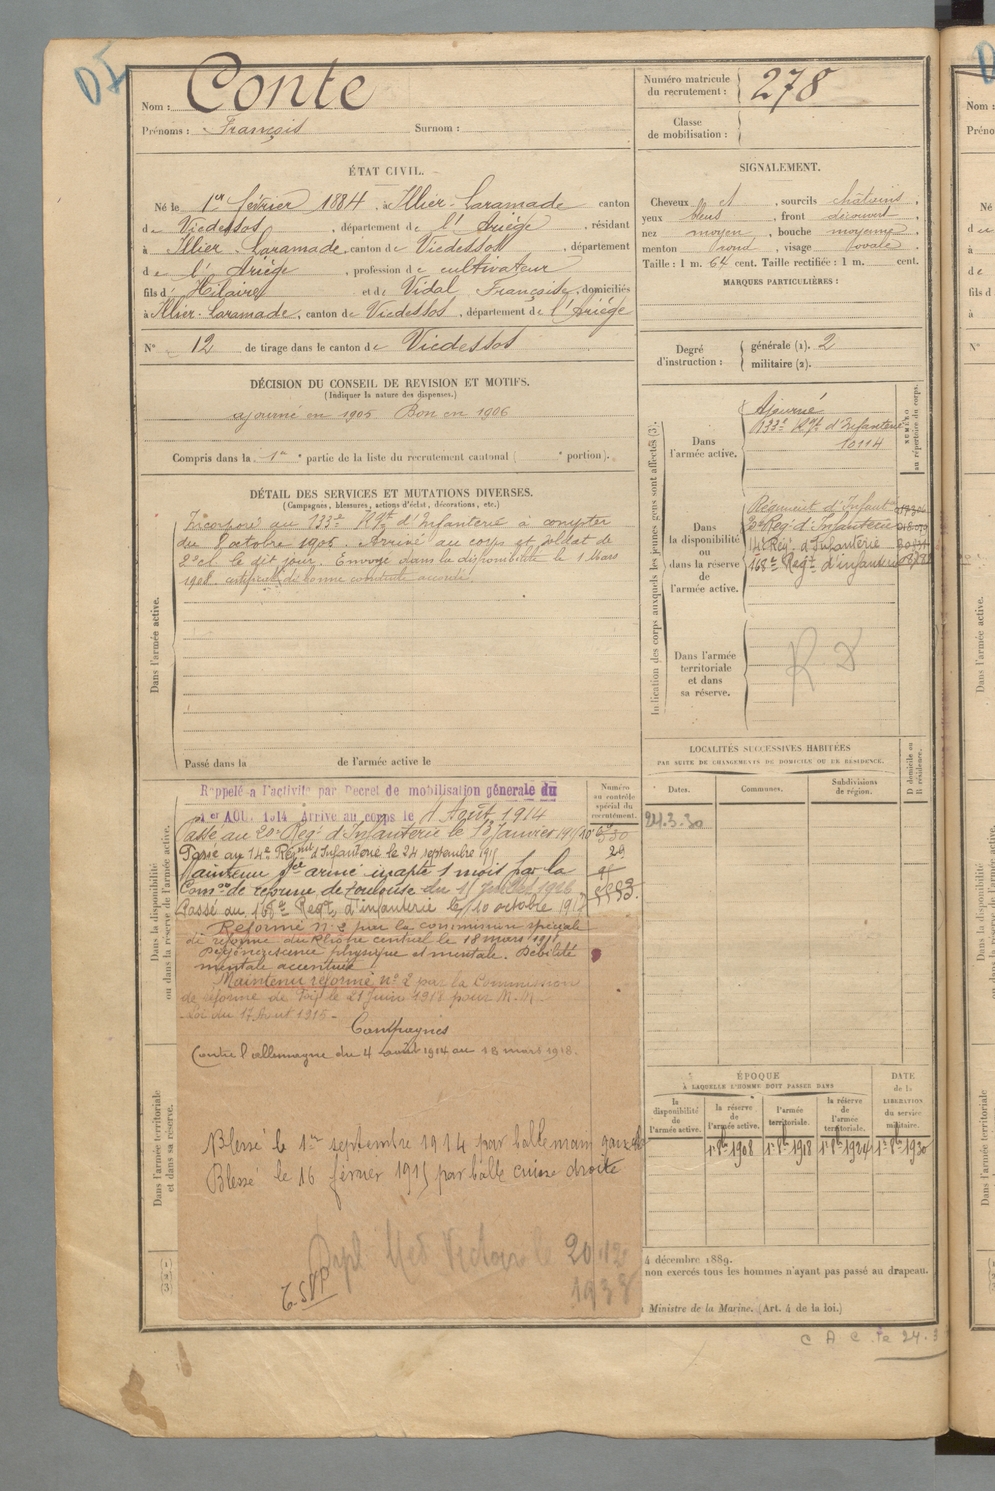 DI
Nom : Conte
Prénoms : François Surnom :
Numéro matricule du recrutement : 278
Classe de mobilisation :
ÉTAT CIVIL.
Né le 1er février 1884, à Illier-Laramade canton
de Vicdessos, département de l'Ariège, résidant
à Illier-Laramade, canton de Vicdessos, département
de l'Ariège, profession de cultivateur
fils d' Hilaire et de Vidal Françoise, domiciliés
à Illier-Laramade, canton de Vicdessos, département de l'Ariège
N° 12 de tirage dans le canton de Vicdessos
SIGNALEMENT.
Cheveux et, sourcils châtains,
yeux bleus, front découvert,
nez moyen, bouche moyenne,
menton rond, visage ovale
Taille : 1 m. 64 cent. Taille rectifiée : 1 m. cent.
MARQUES PARTICULIÈRES :
Degré d'instruction : générale (1). 2
militaire (2).
DÉCISION DU CONSEIL DE REVISION ET MOTIFS.
(Indiquer la nature des dispenses.)
ajourné en 1905 Bon en 1906
Compris dans la 1re partie de la liste du recrutement cantonal ( portion).
DÉTAIL DES SERVICES ET MUTATIONS DIVERSES.
(Campagnes, blessures, actions d'éclat, décorations, etc.)
Dans l'armée active.
Incorporé au 133e Rgt d'Infanterie à compter
du 8 octobre 1906. Arrivé au corps et soldat de
2e cl. le dit jour. Envoyé dans la disponibilité le 1 Mars
1908 certificat de bonne conduite accordé.
Passé dans la de l'armée active le
Indication des corps auxquels les jeunes gens sont affectés (3).
NUMÉRO au répertoire du corps.
Dans l'armée active.
Ajourné
133e Rgt d'Infanterie
10114
Dans la disponibilité ou dans la réserve de l'armée active.
Régiment d'Infant
20e Reg. d'Infanterie
14e Rég. d'Infanterie
168e Regt d'infanterie
Dans l'armée territoriale et dans sa réserve.
R D
LOCALITÉS SUCCESSIVES HABITÉES
PAR SUITE DE CHANGEMENTS DE DOMICILE OU DE RÉSIDENCE.
Dates. Communes. Subdivisions de région. D domicile ou R résidence.
24.3.30
Dans la disponibilité ou dans la réserve de l'armée active.
Numéro au contrôle spécial du recrutement.
Rappelé à l'activité par Décret de mobilisation générale du
1er AOU. 1914 Arrivé au corps le 4 Août 1914
Passé au 20e Reg. d'Infanterie le 13 Janvier 1915
Passé au 14e Régiment d'Infanterie le 24 septembre 1915
Maintenu sce armé inapte 1 mois par la
Comon de réforme de Toulouse du 15 Juillet 1916
Passé au 168e Regt d'infanterie le 10 octobre 1917
Réformé N° 2 par la commission spéciale
de réforme du Rhône central le 18 mars 1918
Dégénérescence physique et mentale. Débilité
mentale accentuée
Maintenu réformé n° 2 par la Commission
de réforme de Foix le 21 juin 1918
Loi du 17 Août 1915
Campagnes
Contre l'allemagne du 4 août 1914 au 18 mars 1918.
Dans l'armée territoriale et dans sa réserve.
Blessé le 1er septembre 1914 par balle main gauche
Blessé le 16 février 1915 par balle cuisse droite
Dipl Med Victoire le 20/12
1938
T.S.V.P.
ÉPOQUE
À LAQUELLE L'HOMME DOIT PASSER DANS
DATE de la LIBÉRATION du service militaire.
la disponibilité de l'armée active. la réserve de l'armée active. l'armée territoriale. la réserve de l'armée territoriale.
1er 8bre 1908 1er 8bre 1918 1er 8bre 1924 1er 8bre 1930
4 décembre 1889.
non exercés tous les hommes n'ayant pas passé au drapeau.
Ministre de la Marine. (Art. 4 de la loi.)
C A C. le 24.3